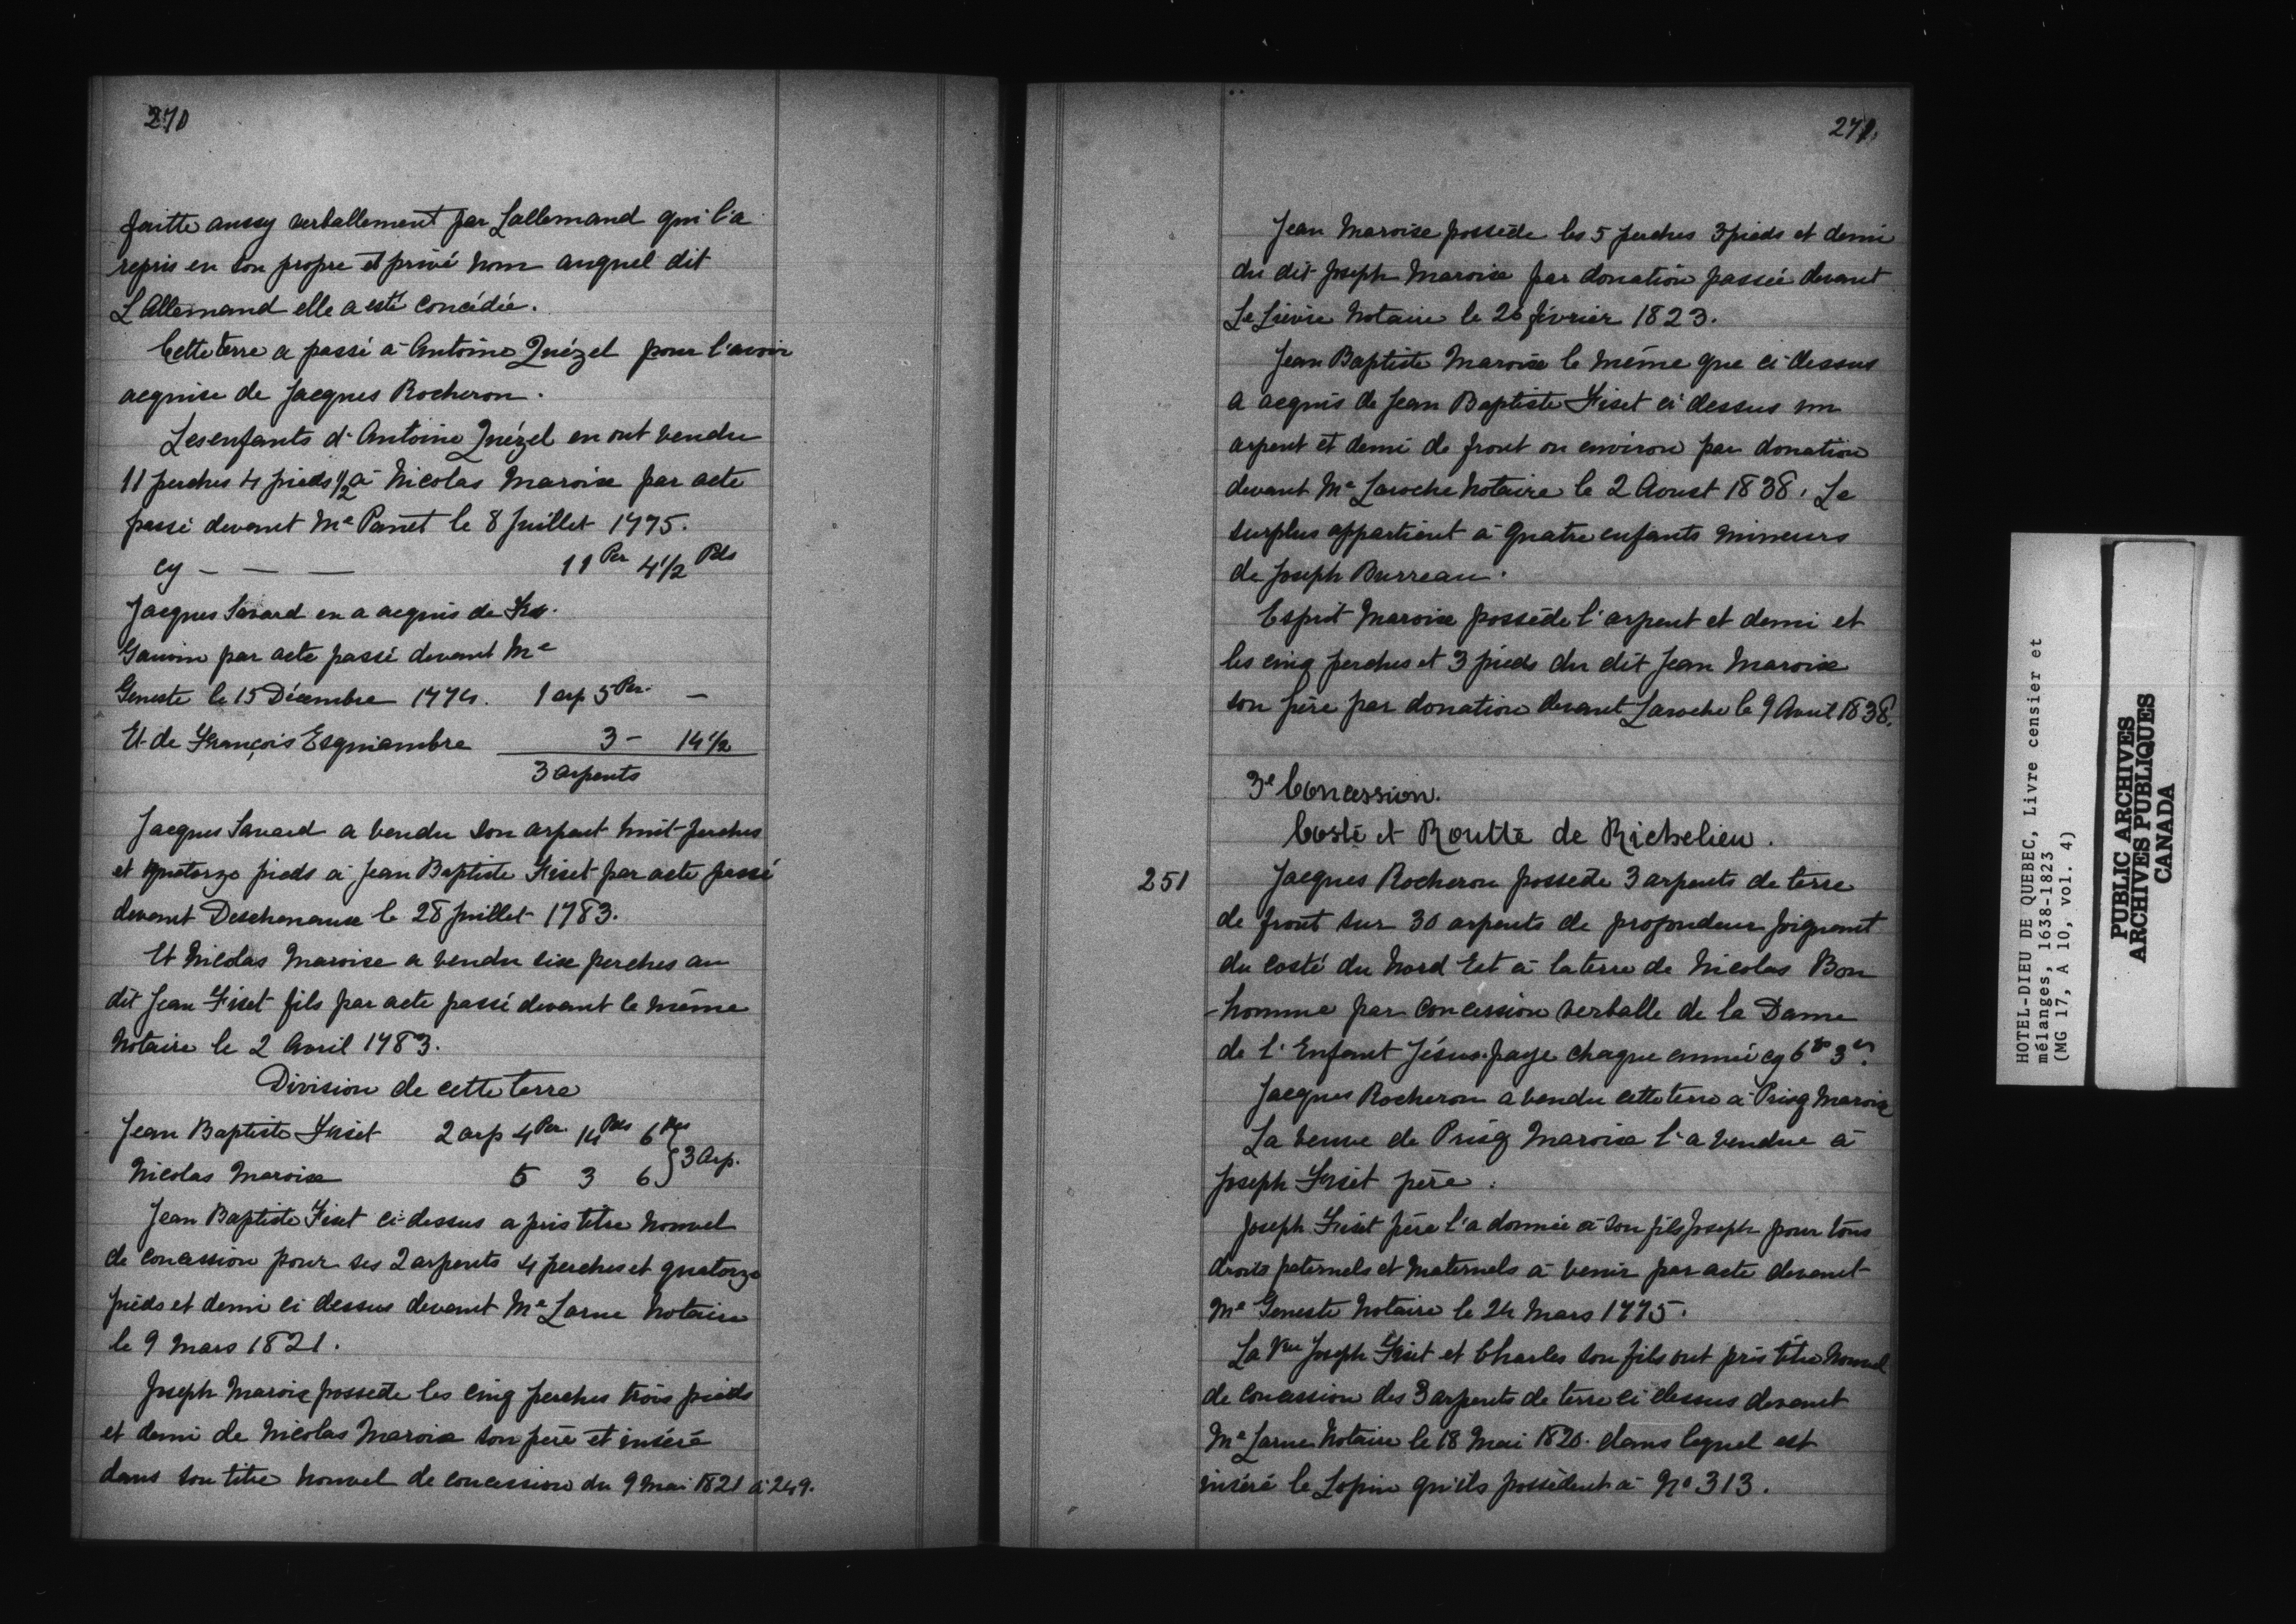 270
faitte aussy verballement par Lallemand qui l'a
repris en son propre et privé nom auquel dit
L'Allemand elle a esté concédée.
Cette terre a passé à Antoine Quézel pour l'avoir
acquise de Jacques Rocheron.
Les enfants d'Antoine Quézel en ont vendu
11 perches 4 pieds 1/2 à Nicolas Maroise par acte
passé devant Me Panet le 8 Juillet 1775.
cy - — — 11 Per 4 1/2 Pds
Jacques Savard en a acquis de Frs.
Gauvin par acte passé devant Me
Geneste le 15 Décembre 1774. 1 arp 5 Per. —
Et de François Esquiambre 3 - 14 1/2
3 arpents
Jacques Savard a vendu son arpent huit perches
et quatorze pieds à Jean Baptiste Fiset par acte passé
devant Deschenaux le 28 Juillet 1783.
Et Nicolas Maroise a vendu six perches au
dit Jean Fiset fils par acte passé devant le même
Notaire le 2 Avril 1783.
Division de cette terre
Jean Baptiste Fiset 2 arp 4 Per. 14 Pds 6 Pces
Nicolas Maroise 5 3 6 } 3 Arp.
Jean Baptiste Fiset ci-dessus a pris titre nouvel
de concession pour ses 2 arpents 4 perches et quatorze
pieds et demi ci dessus devant Me Larue Notaire
le 9 Mars 1821.
Joseph Maroise possede les cinq perches trois pieds
et demi de Nicolas Maroise son père et inséré
dans son titre nouvel de concession du 9 Mai 1821 à 249.
271.
Jean Maroise possède les 5 perches 3 pieds et demi
du dit Joseph Maroise par donation passée devant
Le Lièvre Notaire le 20 février 1823.
Jean Baptiste Maroise le même que ci-dessus
a acquis de Jean Baptiste Fiset ci dessus un
arpent et demi de front ou environ par donation
devant Me Laroche Notaire le 2 Aoust 1838. Le
surplus appartient à quatre enfants mineurs
de Joseph Burreau.
Esprit Maroise possède l'arpent et demi et
les cinq perches et 3 pieds du dit Jean Maroise
son père par donation devant Laroche le 9 Avril 1838.
3e Concession.
Costé et Routte de Richelieu.
251 Jacques Rocheron possede 3 arpents de terre
de front sur 30 arpents de profondeur joignant
du costé du Nord Est à la terre de Nicolas Bon
-homme par concession verballe de la Dame
de l'Enfant Jésus. paye chaque année cy 6 3
Jacques Rocheron a vendu cette terre à Prisq Maroise
La veuve de Prisq Maroise l'a vendue à
Joseph Fiset père.
Joseph Fiset père l'a donnée à son fils Joseph pour tous
droits paternels et maternels à venir par acte devant
Me Geneste Notaire le 24 Mars 1775.
La Vve Joseph Fiset et Charles son fils ont pris titre nouvel
de concession des 3 arpents de terre ci dessus devant
Me Larue Notaire le 18 Mai 1820. dans lequel est
inséré le Lopin qu'ils possèdent à No 313.
HOTEL-DIEU DE QUEBEC, Livre censier et
mélanges, 1638-1823
(MG 17, A 10, vol. 4)
PUBLIC ARCHIVES
ARCHIVES PUBLIQUES
CANADA